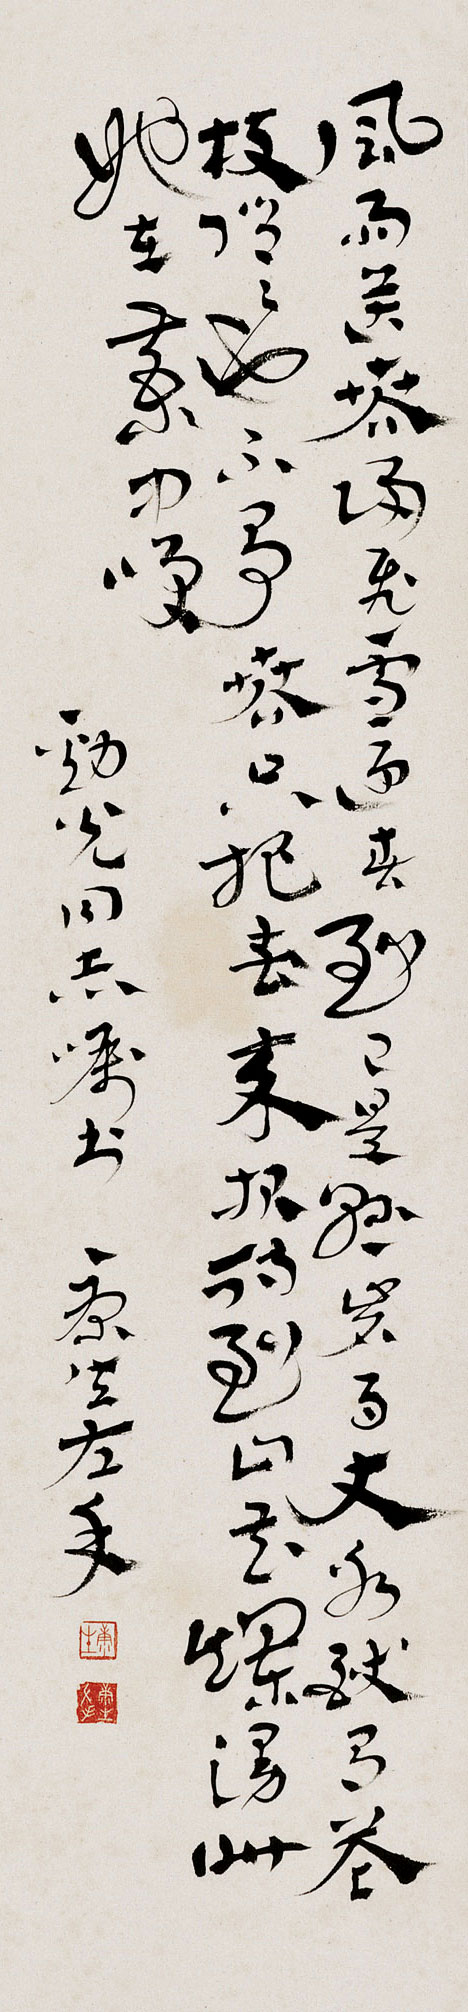 風雨送春歸飛雪迎春到已是懸崖百丈冰猶有花
枝俏〻也不爭春只把春來報待到山花爛漫時
她在叢中咲
勁光同志囑書 康生左手
康生